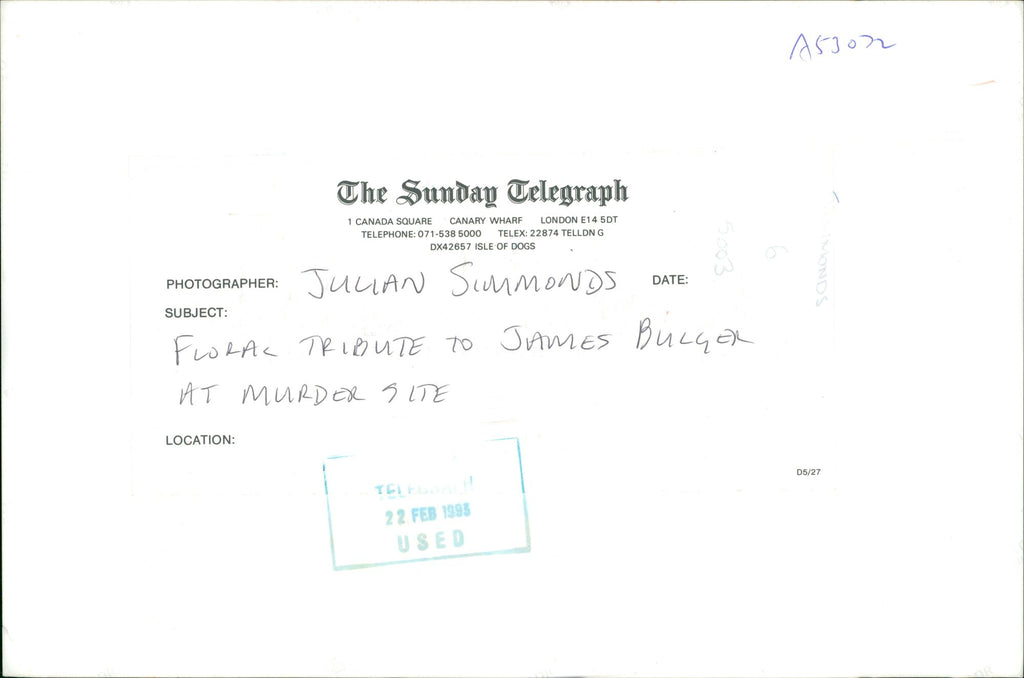 A53072
The Sunday Telegraph
1 CANADA SQUARE CANARY WHARF LONDON E14 5DT
TELEPHONE: 071-538 5000 TELEX: 22874 TELLDN G
DX42657 ISLE OF DOGS
PHOTOGRAPHER: JULIAN SIMMONDS DATE:
SUBJECT:
FLORAL TRIBUTE TO JAMES BULGER
AT MURDER SITE
LOCATION:
D5/27
TELEGRAPH
22 FEB 1993
USED